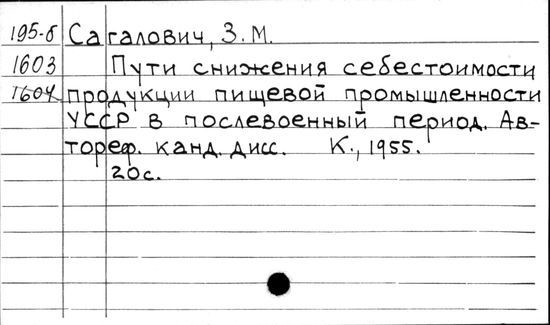 195-б Сагалович, З.М.
1603 Пути снижения себестоимости
1604 продукции пищевой промышленности
УССР в послевоенный период. Ав-
тореф. канд. дисс. К., 1955.
20с.